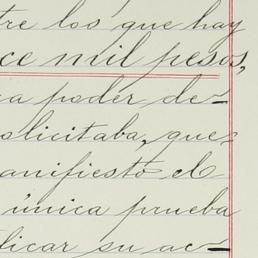 tre los que hay
ce mil pesos,
a poder de-
olicitaba, que-
anifiesto el
única prueba
licar su ac-